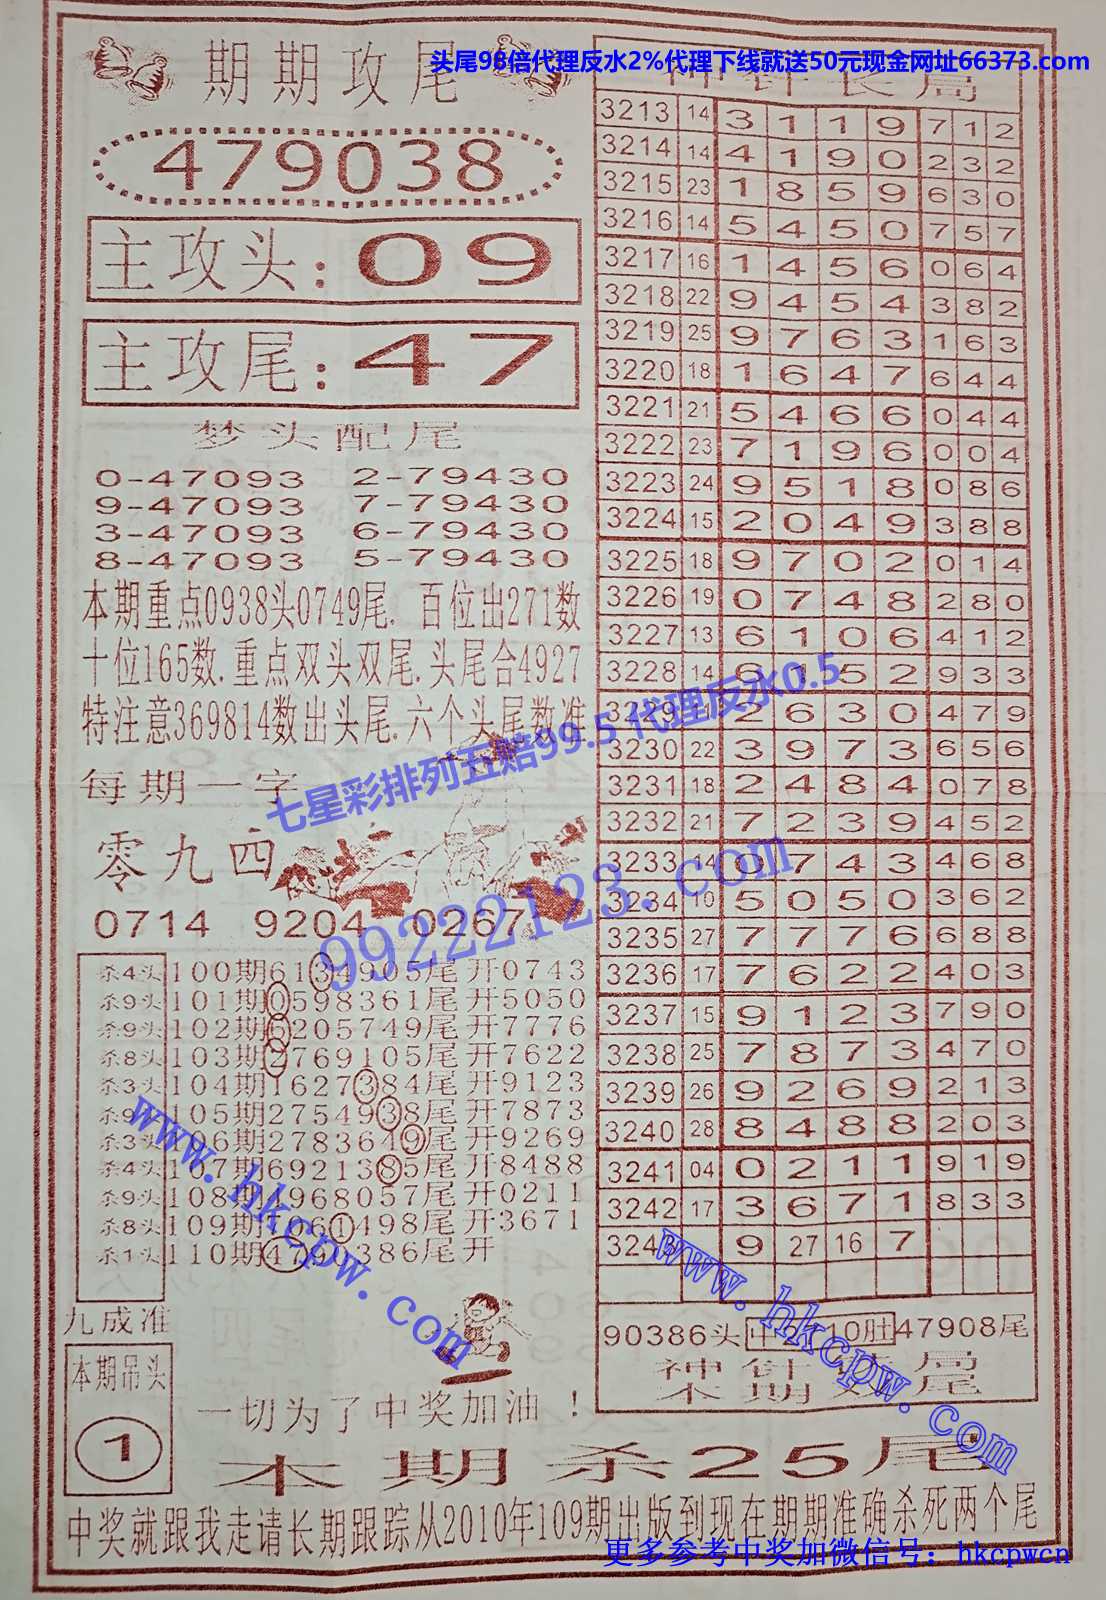 头尾98倍代理反水2%代理下线就送50元现金网址66373.com
期期攻尾
479038
主攻头：09
主攻尾：47
梦头配尾
0-47093 2-79430
9-47093 7-79430
3-47093 6-79430
8-47093 5-79430
本期重点0938头0749尾. 百位出271数
十位165数.重点双头双尾.头尾合4927
特注意369814数出头尾.六个头尾数准
七星彩排列五赔99.5 代理反水0.5
每期一字
零九四
0714 9204 0267
99222123.com
杀4头 100期6134905尾开0743
杀9头 101期0598361尾开5050
杀9头 102期6205749尾开7776
杀8头 103期2769105尾开7622
杀3头 104期1627384尾开9123
杀9头 105期2754938尾开7873
杀3头 106期2783649尾开9269
杀4头 107期6921385尾开8488
杀9头 108期4968057尾开0211
杀8头 109期7061498尾开3671
杀1头 110期4790386尾开
www.hkcpw.com
九成准
本期吊头
1
一切为了中奖加油！
神针长局
3213 14 3 1 1 9 7 1 2
3214 14 4 1 9 0 2 3 2
3215 23 1 8 5 9 6 3 0
3216 14 5 4 5 0 7 5 7
3217 16 1 4 5 6 0 6 4
3218 22 9 4 5 4 3 8 2
3219 25 9 7 6 3 1 6 3
3220 18 1 6 4 7 6 4 4
3221 21 5 4 6 6 0 4 4
3222 23 7 1 9 6 0 0 4
3223 24 9 5 1 8 0 8 6
3224 15 2 0 4 9 3 8 8
3225 18 9 7 0 2 0 1 4
3226 19 0 7 4 8 2 8 0
3227 13 6 1 0 6 4 1 2
3228 14 6 1 5 2 9 3 3
3229 2 6 3 0 4 7 9
3230 22 3 9 7 3 6 5 6
3231 18 2 4 8 4 0 7 8
3232 21 7 2 3 9 4 5 2
3233 14 0 7 4 3 4 6 8
3234 10 5 0 5 0 3 6 2
3235 27 7 7 7 6 6 8 8
3236 17 7 6 2 2 4 0 3
3237 15 9 1 2 3 7 9 0
3238 25 7 8 7 3 4 7 0
3239 26 9 2 6 9 2 1 3
3240 28 8 4 8 8 2 0 3
3241 04 0 2 1 1 9 1 9
3242 17 3 6 7 1 8 3 3
324 9 27 16 7
www.hkcpw.com
90386头 中 10肚 47908尾
神针 局
本期 尾
本期杀25尾
中奖就跟我走请长期跟踪从2010年109期出版到现在期期准确杀死两个尾
更多参考中奖加微信号：hkcpwcn